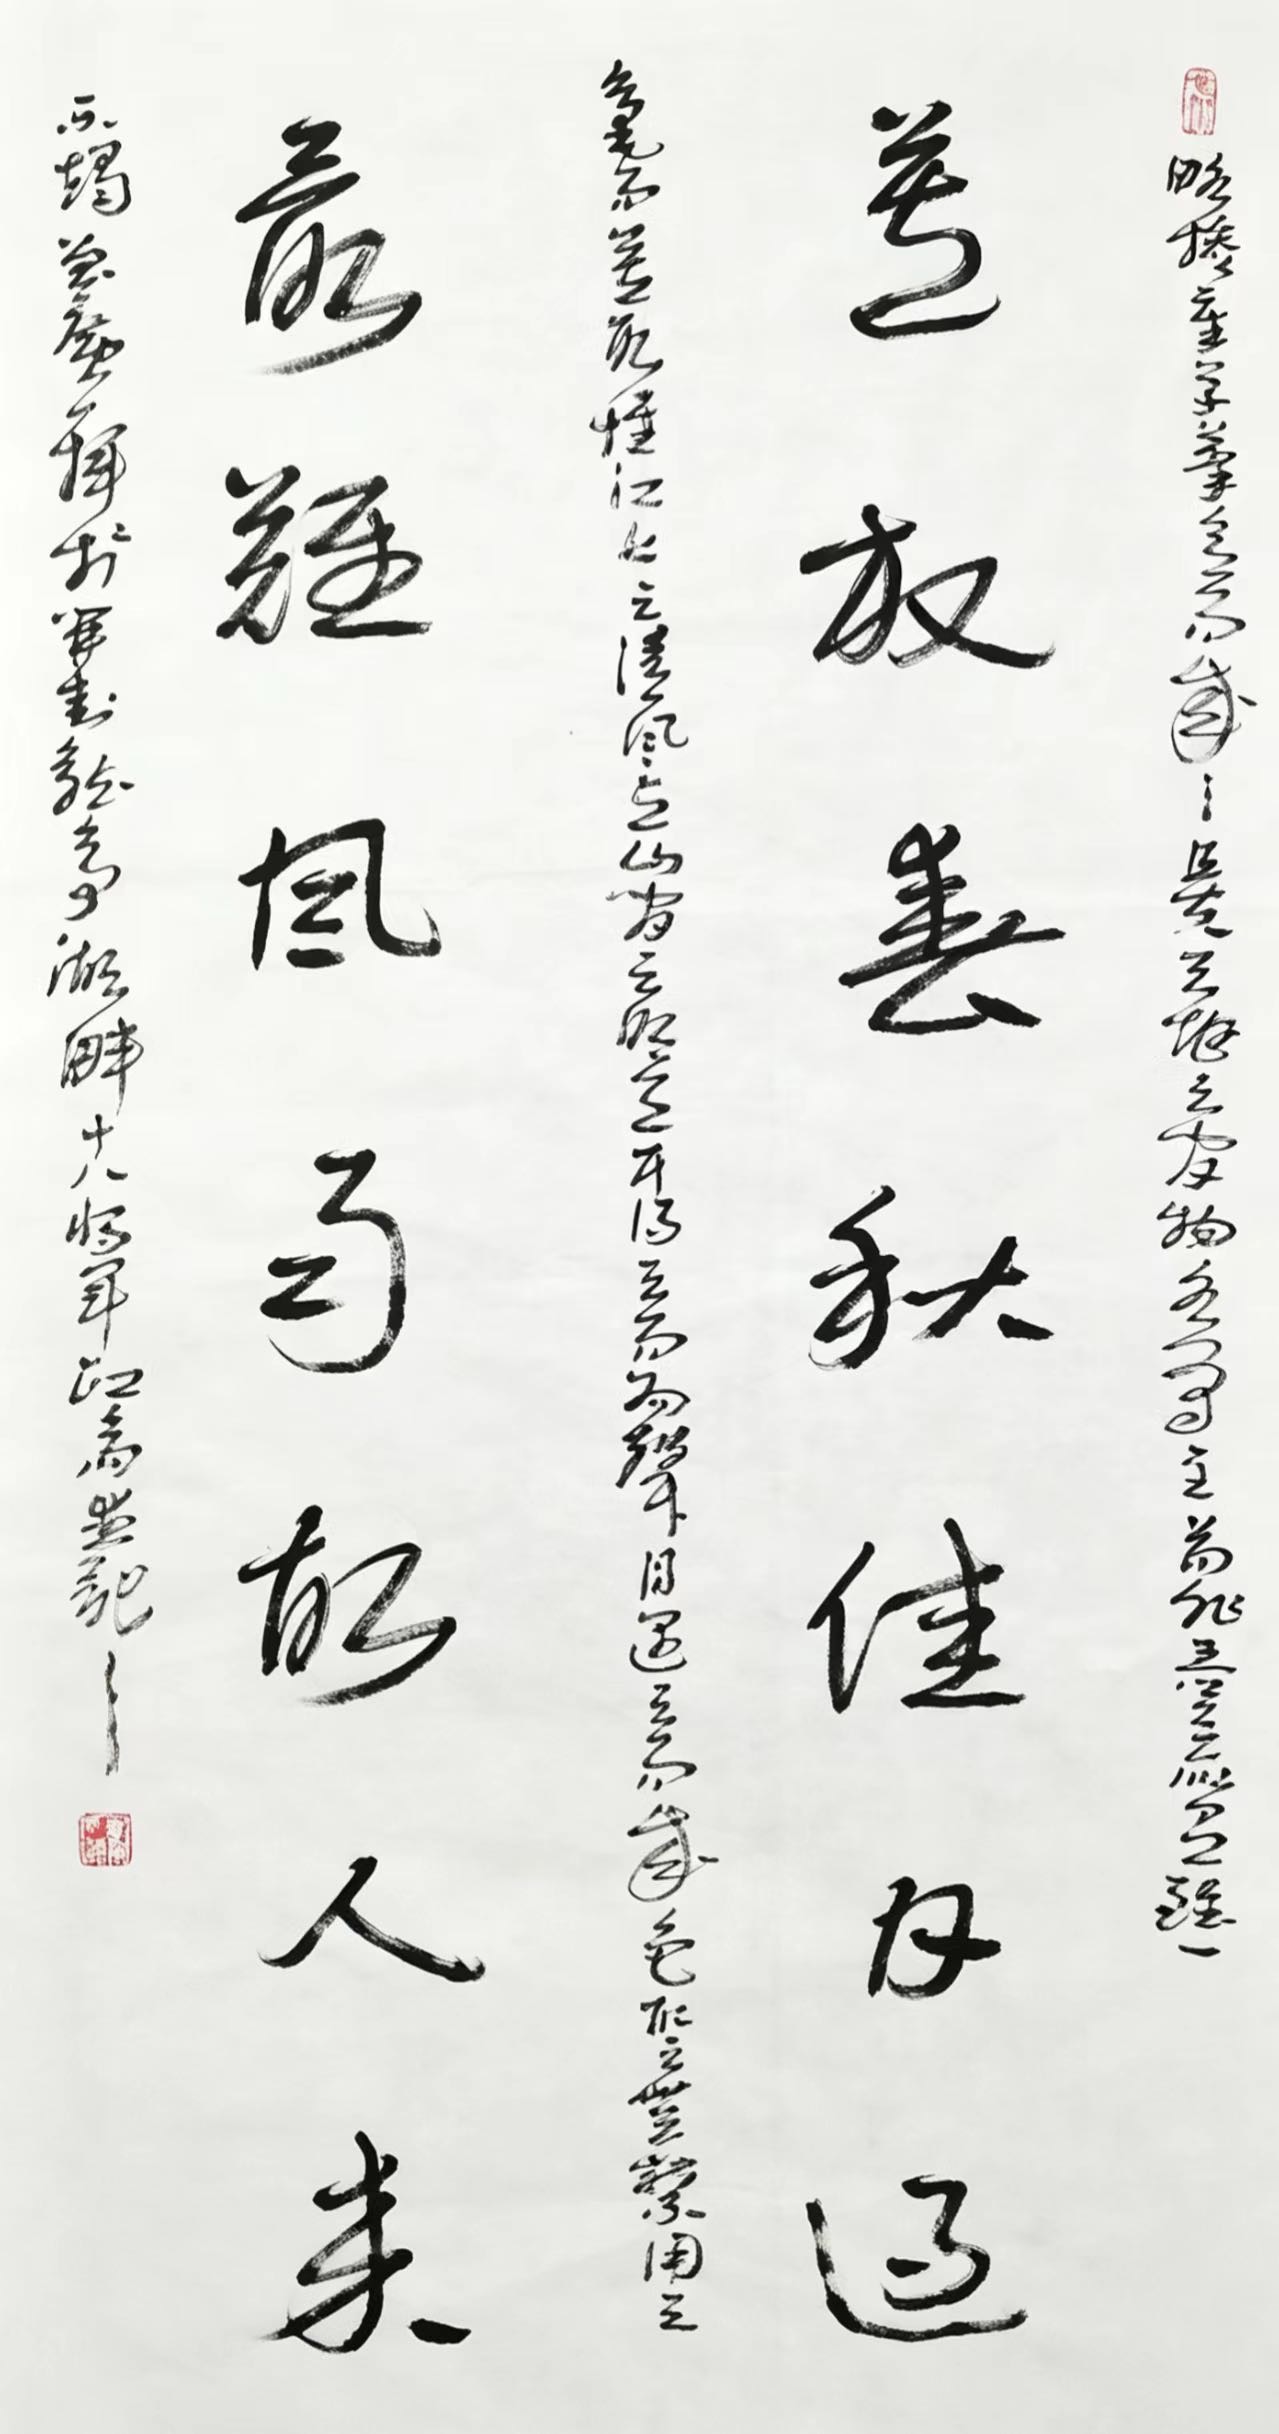 而成之且夫天地之間物各有主苟非吾之所有雖一
莫放春秋佳日過
毫而莫取惟江上之清風與山間之明月耳得之而為聲目遇之而成色取之無禁用之
最難風雨故人來
不竭 於開封龍亭湖畔十八將軍